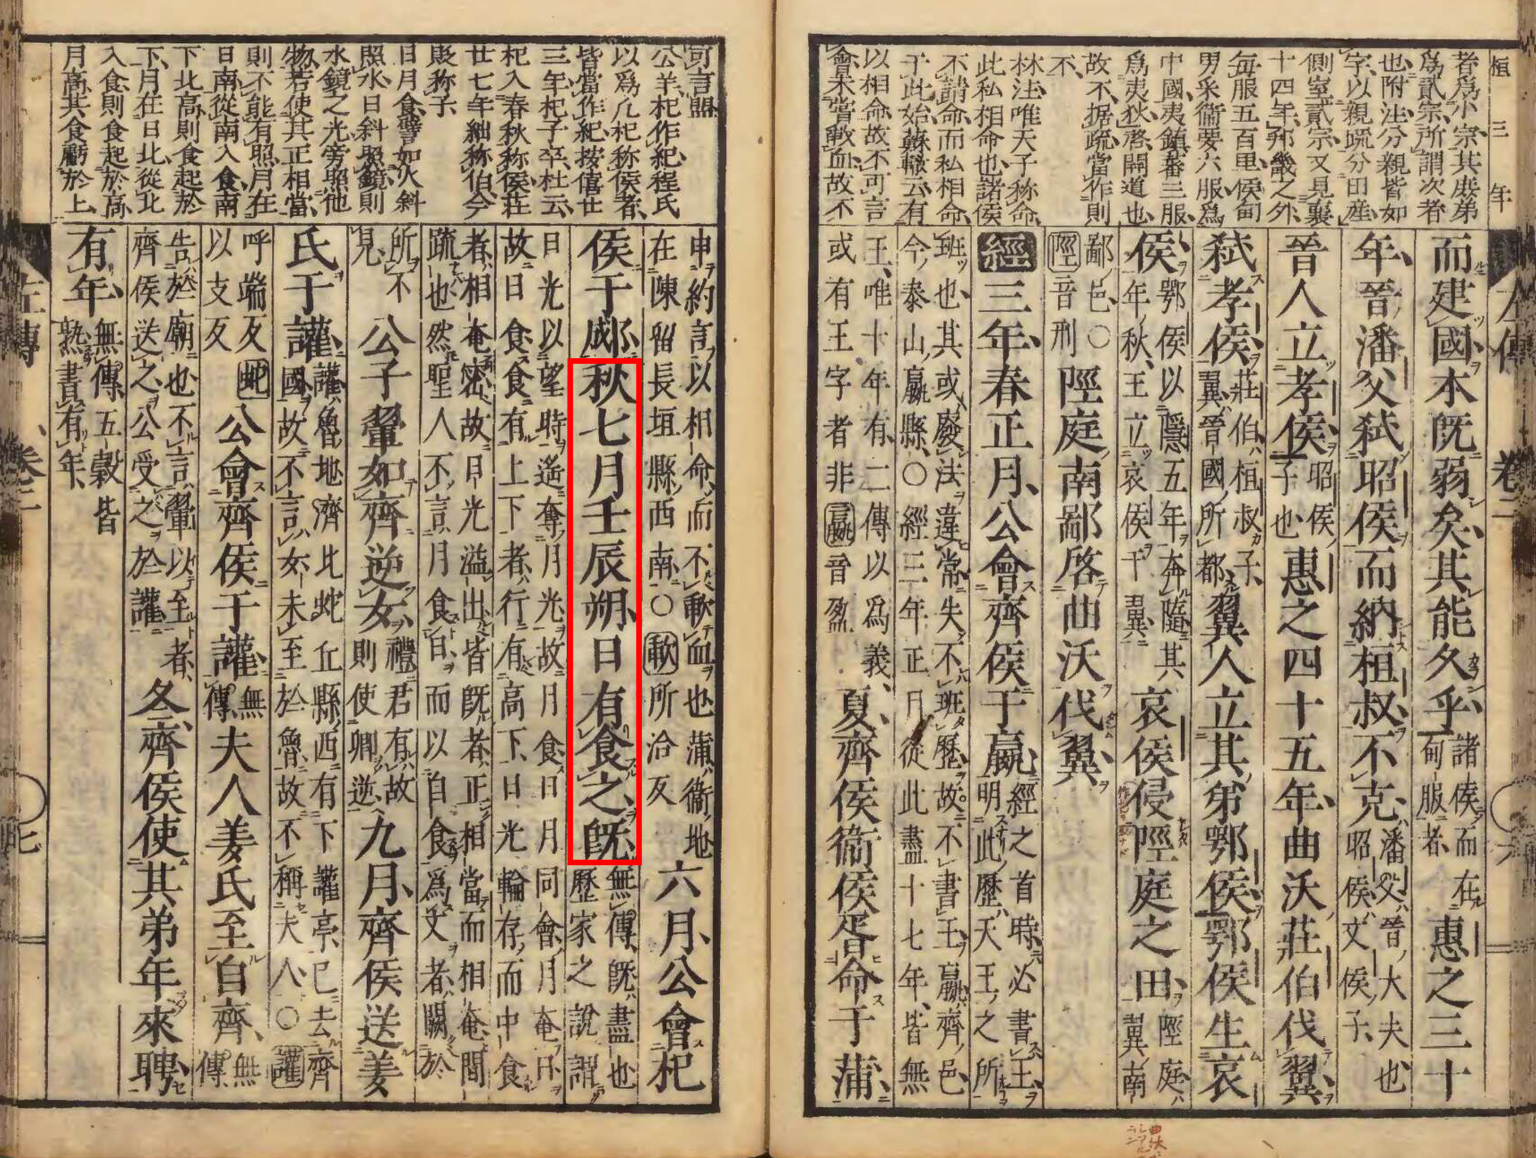 桓三年
者爲小宗其庶弟
爲貳宗所謂次者
也附注分親皆如
字以親疏分田産
側室貳宗又具襄
十四年邦畿之外
毎服五百里侯甸
男采衛要六服爲
中國夷鎮蕃三服
爲夷狄啓開道也
故不据疏當作則
不
林注唯天子称命
此私相命也諸侯
不請命而私相命
于此始蘇轍云有
以相命故不可言
會未嘗歃血故不
左傳 卷二 六
而建國本既弱矣其能久乎諸侯而在甸服者惠之三十
年晉潘父弑昭侯而納桓叔不克潘父晉大夫也昭侯文侯子
晉人立孝侯昭侯子也惠之四十五年曲沃莊伯伐翼
弑孝侯莊伯桓叔子翼晉國所都翼人立其弟鄂侯鄂侯生哀
侯鄂侯以隱五年奔隨其年秋王立哀侯于翼哀侯侵陘庭之田陘庭翼南
鄙邑〇陘音刑陘庭南鄙啓曲沃伐翼
經三年春正月公會齊侯于嬴經之首時必書王明此歷天王之所
班也其或廢法違常失不班歷故不書王嬴齊邑
今泰山嬴縣〇經三年正月從此盡十七年皆無
王唯十年有二傳以爲義
或有王字者非嬴音盈夏齊侯衛侯胥命于蒲
申約言以相命而不歃血也蒲衛地
在陳留長垣縣西南〇歃所洽反六月公會杞
侯于郕秋七月壬辰朔日有食之既無傳既盡也歷家之說謂
日光以望時遙奪月光故月食日月同會月奄日
故日食食有上下者行有高下日光輪存而中食
者相奄密故日光溢出皆既者正相當而相奄間
疏也然聖人不言月食日而以自食爲文者闕於
所不見公子翬如齊逆女禮君有故則使卿逆九月齊侯送姜
氏于讙讙魯地濟北蛇丘縣西有下讙亭已去齊
國故不言女未至於魯故不稱夫人〇讙
呼端反蛇以支反公會齊侯于讙無傳夫人姜氏至自齊無傳
告於廟也不言翬以至者
齊侯送之公受之於讙冬齊侯使其弟年來聘
有年無傳五穀皆熟書有年
可言盟
公羊杞作紀程氏
以爲凡杞称侯者
皆當作紀按僖廿
三年杞子卒杜云
杞入春秋称侯莊
廿七年絀称伯今
貶称子
日月食譬如火斜
照水日斜照鏡則
水鏡之光旁照他
物若使其正相當
則不能有照月在
日南從南入食南
下北高則食起於
下月在日北從北
入食則食起於高
月高其食虧於上
左傳 卷二 七